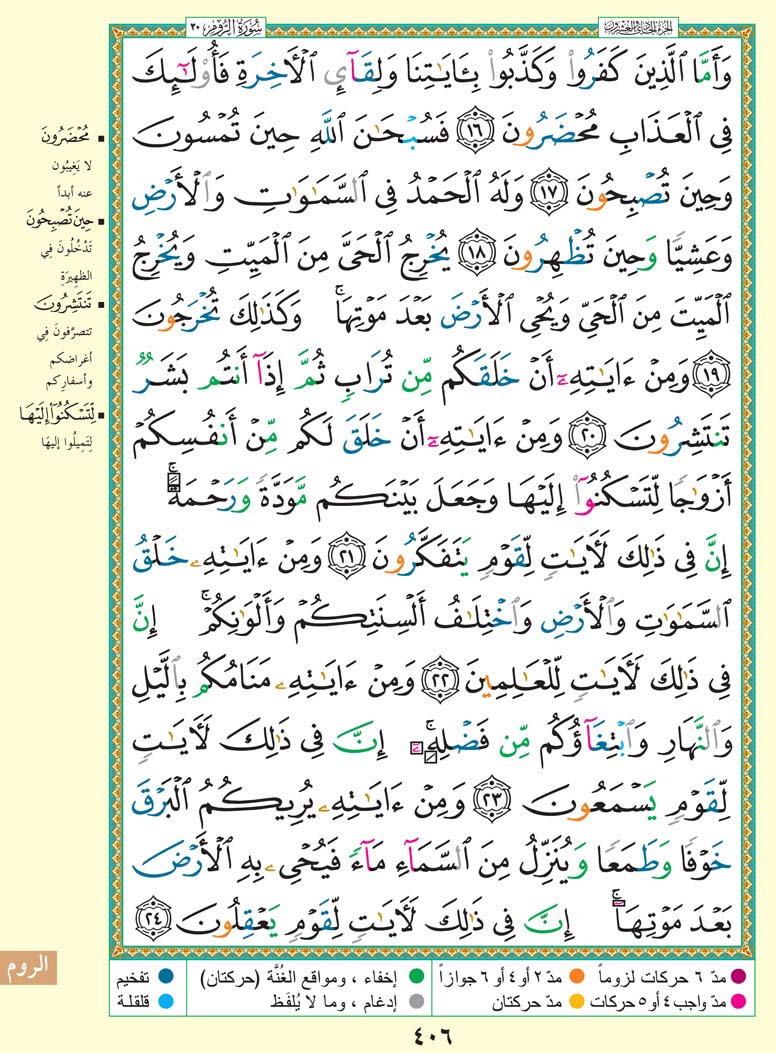 سُورَةُ الرُّومِ ٣٠
الجزء الحادي والعشرون
وَأَمَّا ٱلَّذِينَ كَفَرُوا۟ وَكَذَّبُوا۟ بِـَٔايَـٰتِنَا وَلِقَآئِ ٱلْـَٔاخِرَةِ فَأُو۟لَـٰٓئِكَ
فِى ٱلْعَذَابِ مُحْضَرُونَ ١٦ فَسُبْحَـٰنَ ٱللَّهِ حِينَ تُمْسُونَ
وَحِينَ تُصْبِحُونَ ١٧ وَلَهُ ٱلْحَمْدُ فِى ٱلسَّمَـٰوَٰتِ وَٱلْأَرْضِ
وَعَشِيًّا وَحِينَ تُظْهِرُونَ ١٨ يُخْرِجُ ٱلْحَىَّ مِنَ ٱلْمَيِّتِ وَيُخْرِجُ
ٱلْمَيِّتَ مِنَ ٱلْحَىِّ وَيُحْىِ ٱلْأَرْضَ بَعْدَ مَوْتِهَا ۚ وَكَذَٰلِكَ تُخْرَجُونَ
١٩ وَمِنْ ءَايَـٰتِهِۦٓ أَنْ خَلَقَكُم مِّن تُرَابٍ ثُمَّ إِذَآ أَنتُم بَشَرٌ
تَنتَشِرُونَ ٢٠ وَمِنْ ءَايَـٰتِهِۦٓ أَنْ خَلَقَ لَكُم مِّنْ أَنفُسِكُمْ
أَزْوَٰجًا لِّتَسْكُنُوٓا۟ إِلَيْهَا وَجَعَلَ بَيْنَكُم مَّوَدَّةً وَرَحْمَةً ۚ
إِنَّ فِى ذَٰلِكَ لَـَٔايَـٰتٍ لِّقَوْمٍ يَتَفَكَّرُونَ ٢١ وَمِنْ ءَايَـٰتِهِۦ خَلْقُ
ٱلسَّمَـٰوَٰتِ وَٱلْأَرْضِ وَٱخْتِلَـٰفُ أَلْسِنَتِكُمْ وَأَلْوَٰنِكُمْ ۚ إِنَّ
فِى ذَٰلِكَ لَـَٔايَـٰتٍ لِّلْعَـٰلِمِينَ ٢٢ وَمِنْ ءَايَـٰتِهِۦ مَنَامُكُم بِٱلَّيْلِ
وَٱلنَّهَارِ وَٱبْتِغَآؤُكُم مِّن فَضْلِهِۦٓ ۚ إِنَّ فِى ذَٰلِكَ لَـَٔايَـٰتٍ
لِّقَوْمٍ يَسْمَعُونَ ٢٣ وَمِنْ ءَايَـٰتِهِۦ يُرِيكُمُ ٱلْبَرْقَ
خَوْفًا وَطَمَعًا وَيُنَزِّلُ مِنَ ٱلسَّمَآءِ مَآءً فَيُحْىِۦ بِهِ ٱلْأَرْضَ
بَعْدَ مَوْتِهَآ ۚ إِنَّ فِى ذَٰلِكَ لَـَٔايَـٰتٍ لِّقَوْمٍ يَعْقِلُونَ ٢٤
مُحْضَرُونَ
لا يَغِيبُون
عنه أبداً
حِينَ تُصْبِحُونَ
تَدْخُلُونَ فِي
الظهيرَة
تَنتَشِرُونَ
تتصرَّفونَ فِي
أغراضكم
وأسفارِكم
لِّتَسْكُنُوٓا۟ إِلَيْهَا
لِتَمِيلُوا إليهَا
الروم
مدّ ٦ حركات لزوماً مدّ ٢ أو ٤ أو ٦ جوازاً إخفاء ، ومواقع الغُنَّة (حركتان) تفخيم
مدّ واجب ٤ أو ٥ حركات مدّ حركتان إدغام ، وما لا يُلفَظ قلقلة
٤٠٦